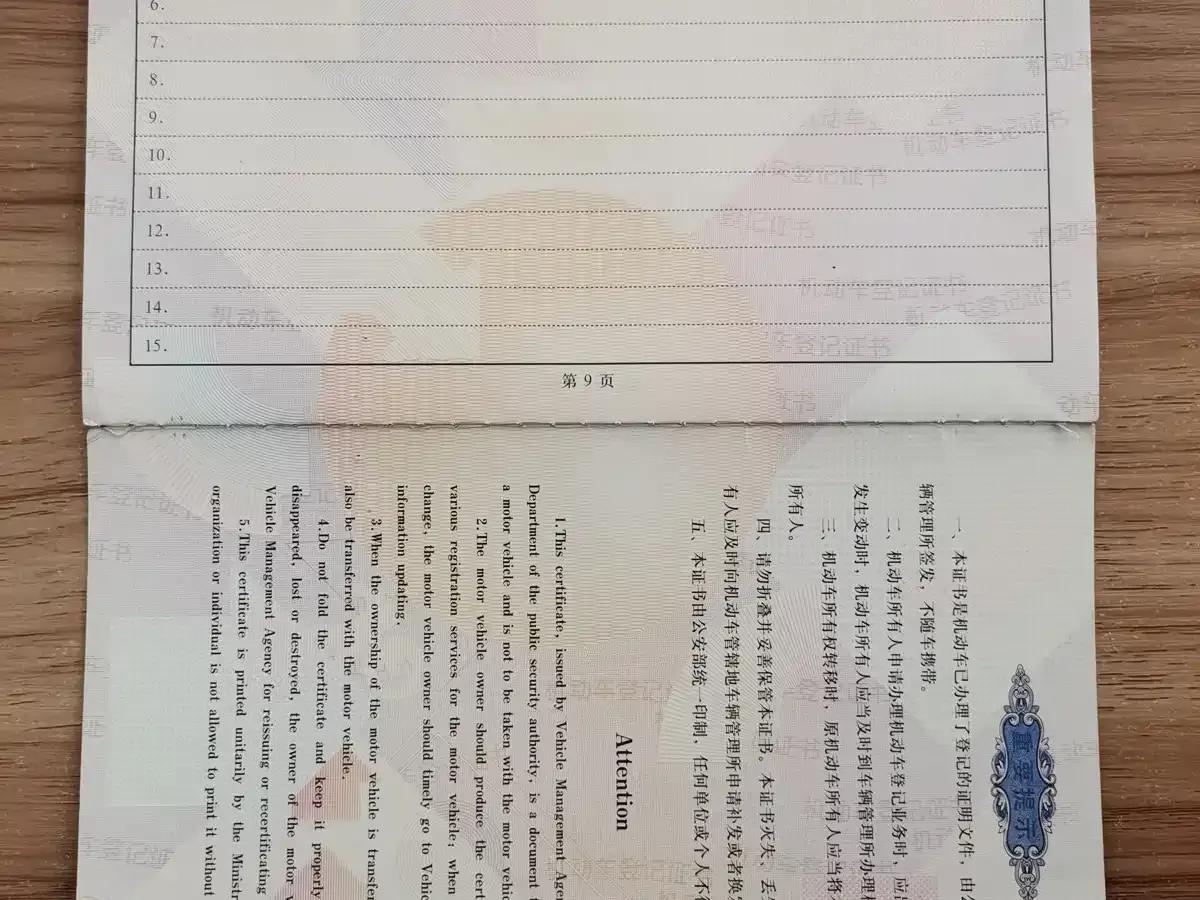 6.
7.
8.
9.
10.
11.
12.
13.
14.
15.
第 9 页
重要提示
一、本证书是机动车已办理了登记的证明文件，由
辆管理所签发，不随车携带。
二、机动车所有人申请办理机动车登记业务时，应
发生变动时，机动车所有人应当及时到车辆管理所办理
三、机动车所有权转移时，原机动车所有人应当将
所有人。
四、请勿折叠并妥善保管本证书。本证书灭失、丢
有人应及时向机动车管辖地车辆管理所申请补发或者换
五、本证书由公安部统一印制，任何单位或个人不
Attention
1.This certificate, issued by Vehicle Management
Department of the public security authority, is a document
a motor vehicle and is not to be taken with the motor
2.The motor vehicle owner should produce the
various registration services for the motor vehicle; when
change, the motor vehicle owner should timely go to
information updating.
3.When the ownership of the motor vehicle is
also be transferred with the motor vehicle.
4.Do not fold the certificate and keep it properly
disappeared, lost or destroyed, the owner of the motor
Vehicle Management Agency for reissuing or recertificating
5.This certificate is printed unitarily by the
organization or individual is not allowed to print it without
机动车登记证书
机动车登记证书
登记证书
登记证书
机动车登记证书
机动车登记证书
登记证书
机动车